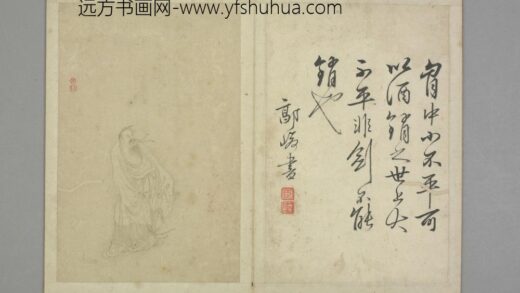 远方书画网-www.yfshuhua.com
胷中小不平可
以酒銷之世上大
不平非劍不能
銷也